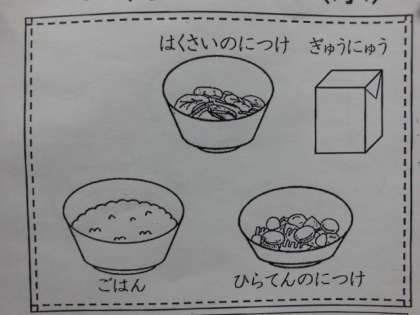 はくさいのにつけ
ぎゅうにゅう
ごはん
ひらてんのにつけ